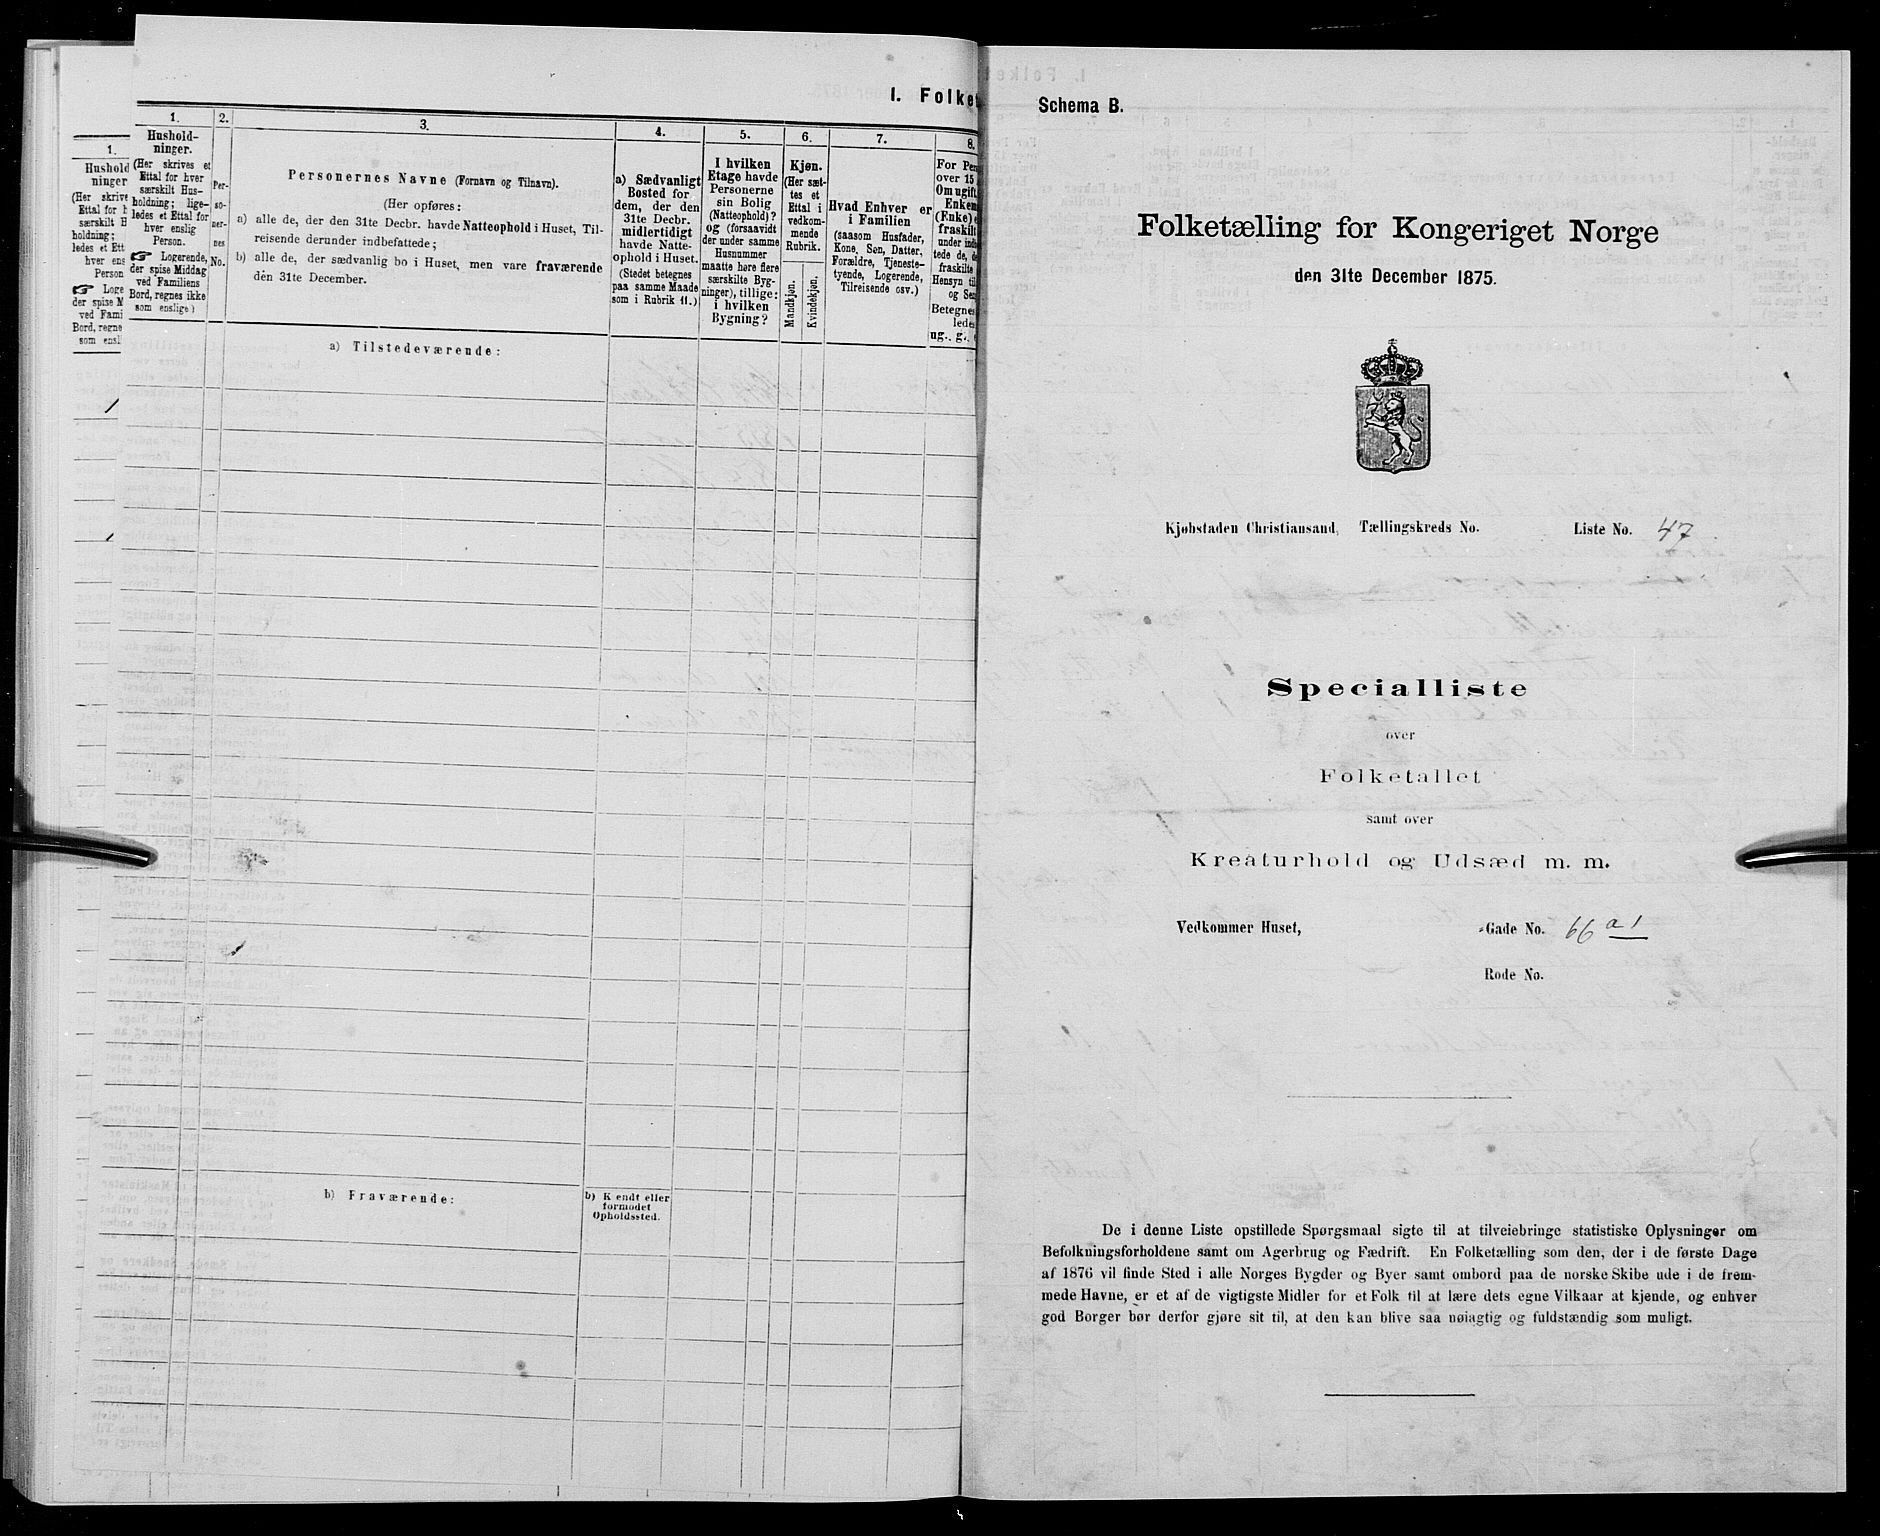 I. Folket
1.
Hushold
ninger
(Her skrive
Ettal for h
særskilt H
holdning;
ledes et Ett
hver ens
Person
Loge
der spise M
ved Fami
Bord, regne
som ensl
1.
Hushold-
ninger.
(Her skrives et
Ettal for hver
særskilt Hus-
holdning; lige-
ledes et Ettal for
hver enslig
Person.
☞ Logerende,
der spise Middag
ved Familiens
Bord, regnes ikke
som enslige)
2.
Per-
so-
ner-
nes
No.
3.
Personernes Navne (Fornavn og Tilnavn).
(Her opføres:
a) alle de, der den 31te Decbr. havde Natteophold i Huset, Til-
reisende derunder indbefattede;
b) alle de, der sædvanlig bo i Huset, men vare fraværende
den 31te December.
4.
a) Sædvanligt
Bosted for
dem, der den
31te Decbr.
midlertidigt
havde Natte-
ophold i Huset.
(Stedet betegnes
paa samme Maade
som i Rubrik 11.)
5.
I hvilken
Etage havde
Personerne
sin Bolig
(Natteophold)?
og (forsaavidt
der under samme
Husnummer
maatte høre flere
særskilte Byg-
ninger), tillige:
i hvilken
Bygning?
6.
Kjøn.
(Her sæt-
tes et
Ettal i
vedkom-
mende
Rubrik.
Mandkjøn.
Kvindekjøn.
7.
Hvad Enhver er
i Familien
(saasom Husfader,
Kone, Søn, Datter,
Forældre, Tjeneste-
tyende, Logerende,
Tilreisende osv.)
8.
For Pers
over 15
Om ugift,
Enkem
(Enke) e
fraskilt
under inds
tede de, de
fraskilte
Hensyn til
og Sen
Betegnes
ledes
ug., g., e
a) Tilstedeværende:
b) Fraværende:
b) Kendt eller
formodet
Opholdssted.
Schema B.
Folketælling for Kongeriget Norge
den 31te December 1875.
Kjøbstaden Christiansand, Tællingskreds No. Liste No. 47
Specialliste
over
Folketallet
samt over
Kreaturhold og Udsæd m. m.
Vedkommer Huset, -Gade No. 66 a1
Rode No.
De i denne Liste opstillede Spørgsmaal sigte til at tilveiebringe statistiske Oplysninger om
Befolkningsforholdene samt om Agerbrug og Fædrift. En Folketælling som den, der i de første Dage
af 1876 vil finde Sted i alle Norges Bygder og Byer samt ombord paa de norske Skibe ude i de frem-
mede Havne, er et af de vigtigste Midler for et Folk til at lære dets egne Vilkaar at kjende, og enhver
god Borger bør derfor gjøre sit til, at den kan blive saa nøiagtig og fuldstændig som muligt.